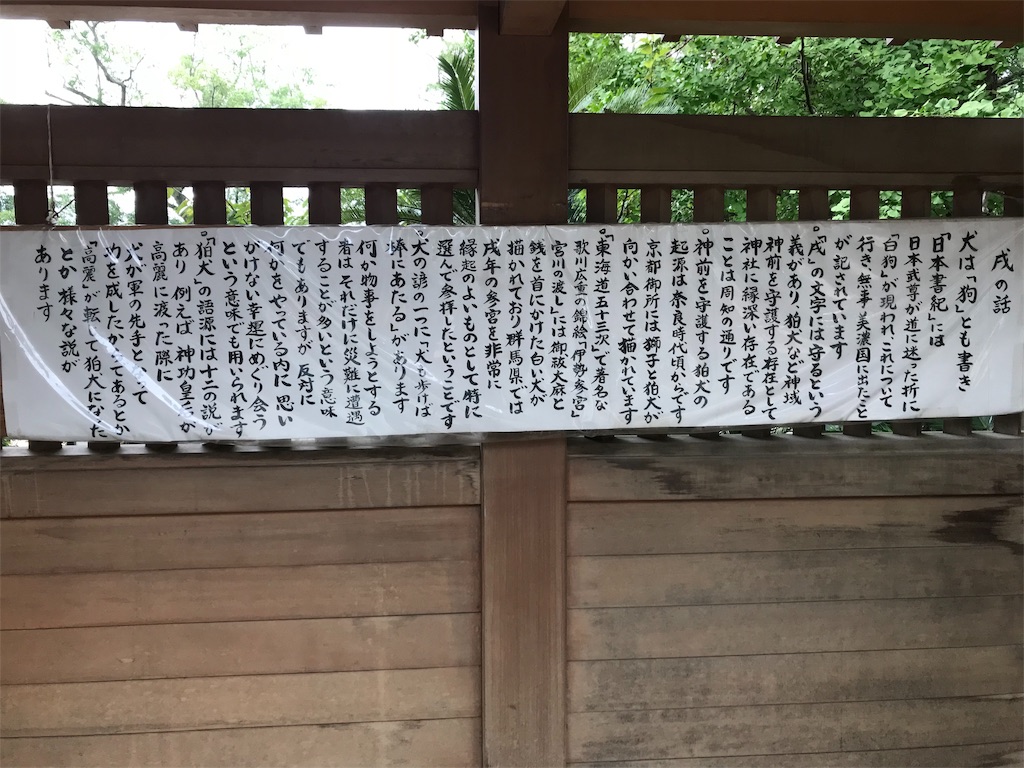 戌の話
犬は「狗」とも書き
「日本書紀」には
日本武尊が道に迷った折に
「白狗」が現われ、これについて
行き無事美濃国に出たこと
が記されています
。「戌」の文字には守るという
義があり狛犬など神域
神前を守護する存在として
神社に縁深い存在である
ことは周知の通りです
。神前を守護する狛犬の
起源は奈良時代頃からです
京都御所には獅子と狛犬が
向かい合わせて描かれています
。東海道五十三次で著名な
歌川広重の錦絵「伊勢参宮」
宮川の渡し」には御祓大麻と
銭を首にかけた白い犬が
描かれており群馬県では
戌年の参宮を非常に
縁起のよいものとして時に
選んで参拝したということです
。犬の諺の一つに「犬も歩けば
棒にあたる」があります
何か物事をしようとする
者はそれだけに災難に遭遇
することが多いという意味
でもありますが反対に
何かをやっている内に思い
がけない幸運にめぐり会う
という意味でも用いられます
。「狛犬」の語源には十二の説が
あり例えば神功皇后が
高麗に渡った際に
犬が軍の先手となって
功を成したからであるとか
「高麗」が転て狛犬になった
とか様々な説が
あります